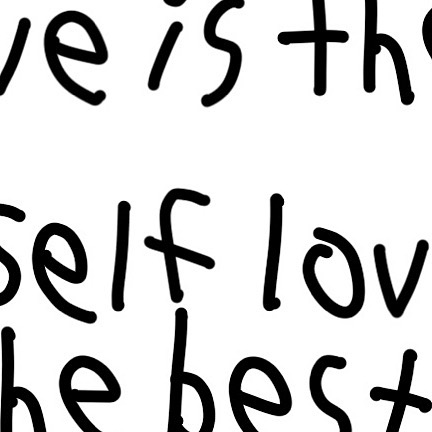 ve is the
self lov
he best